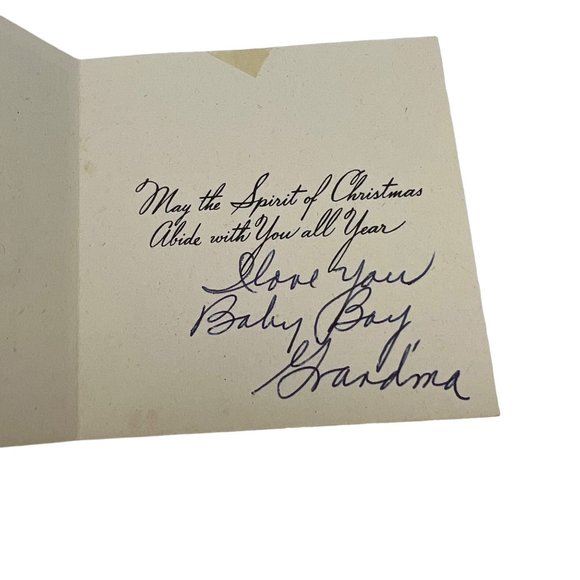 May the Spirit of Christmas
Abide with You all Year
I love you
Baby Boy,
Grandma